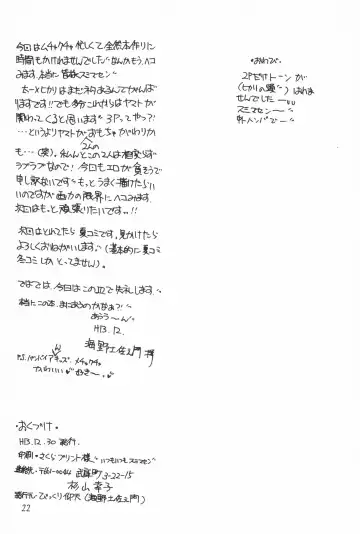 今回はムチャクチャ忙しくて全然本作りに
時間もかけれませんでした なんかもう、ヘコ
みます。本当に皆様スミマセン
ちーとヒカリはまだネタあるんでがんば
ります!!でも多分これからはヤマトが
関わってくると思います 3Pってやつ?!
…というよりヤマトがおもちゃがわりか
も…(笑)。なんとこの2人は相変らず
2人の
ラブラブなので!今回もエロが
申し訳ないです もっとうまく描けたらい
いのですが画力の限界にヘコみます。
次回はもっと頑張りたいです。!!
次回はとれてたら夏コミです。見かけたら
よろしくおねがいします。(基本的に夏コミ
冬コミしかとってません)。
ではでは、今日はこの辺で失礼します。
本当にこの本、まにあうのかなぁ?!
あうう〜ん
H13.12.
海野土佐ェ門 拝
P.S. バンパイアキッズ メチャクチャ
かわいい 好き〜
・おわび・
2P だけトーンが
(ヒカリの頭)はれま
せんでした…
スミマセン〜
・おくづけ・
H13.12.30 発行
印刷・さくらプリント様 いつもいつもスミマセン
3-22-15
杉山幸子
発行元・びっくり仰天(海野土佐ェ門)
22